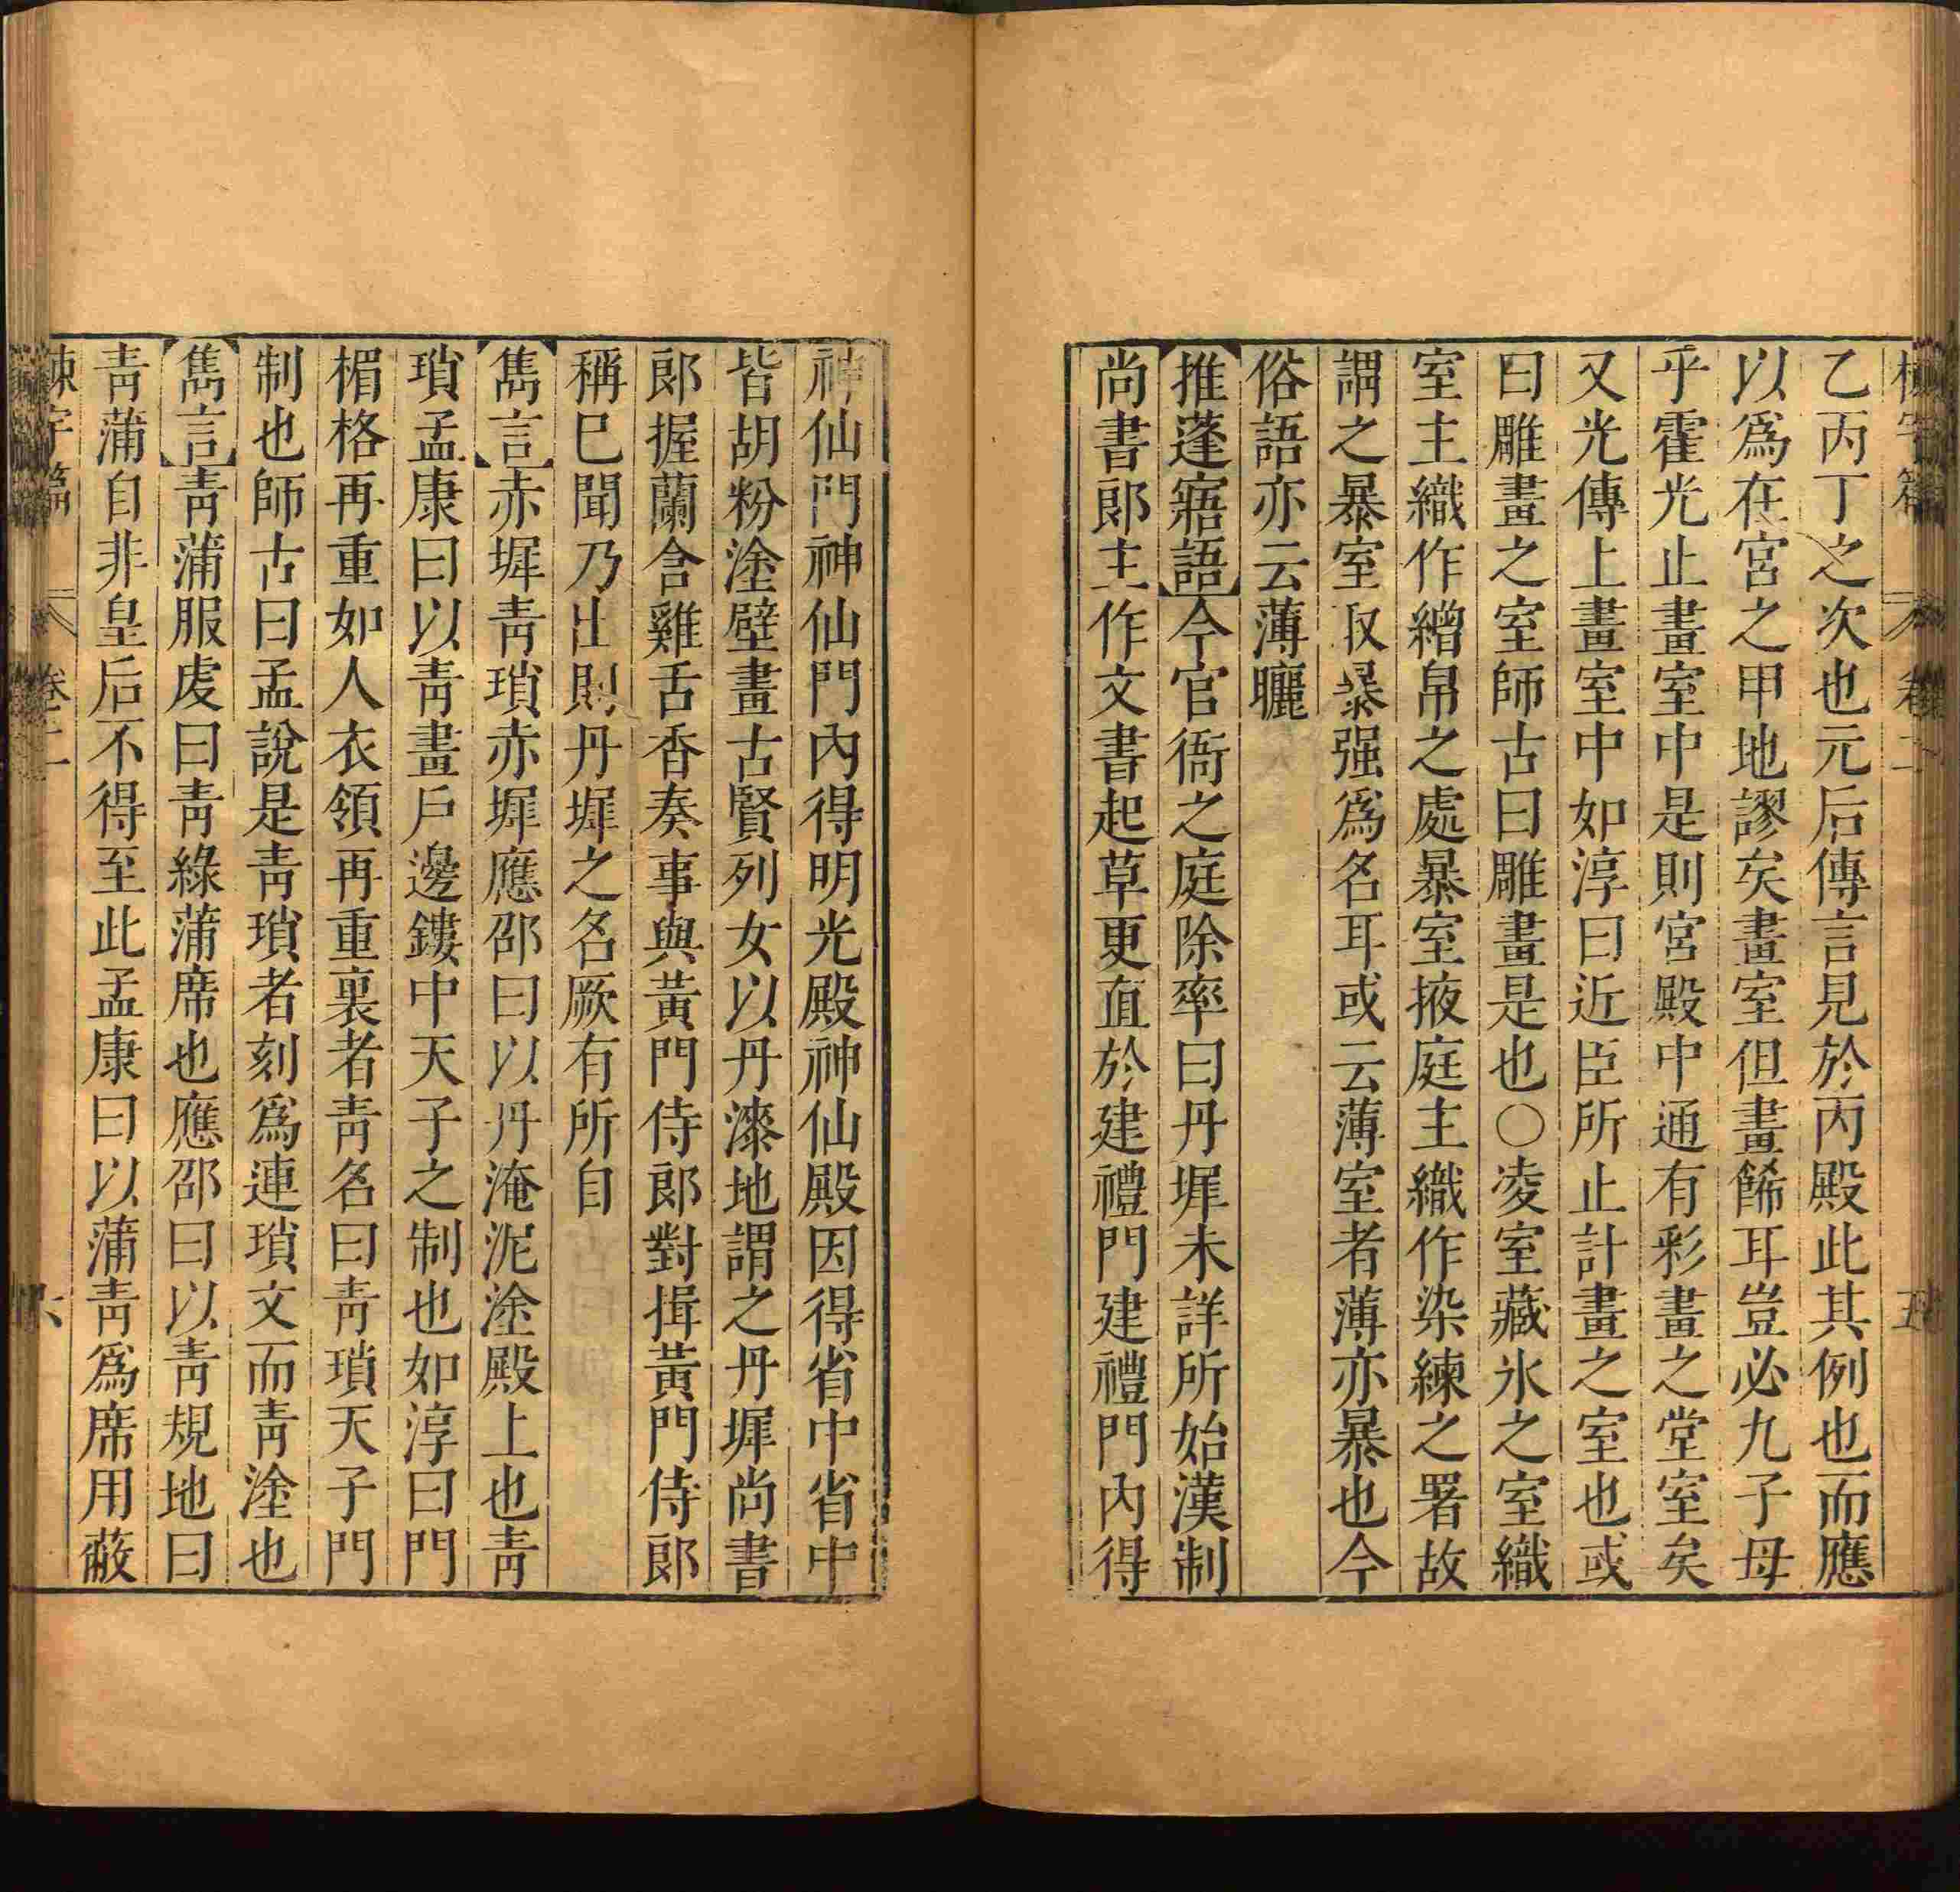 卷二 五
乙丙丁之次也元后傳言見於丙殿此其例也而應
以爲在宮之甲地謬矣畫室但畫餙耳豈必九子母
乎霍光止畫室中是則宮殿中通有彩畫之堂室矣
又光傳上畫室中如淳曰近臣所止計畫之室也或
曰雕畫之室師古曰雕畫是也○凌室藏氷之室織
室主織作繒帛之處暴室掖庭主織作染練之署故
謂之暴室取暴强爲名耳或云薄室者薄亦暴也今
俗語亦云薄曬
推蓬寤語今官衙之庭除率曰丹墀未詳所始漢制
尚書郎主作文書起草更直於建禮門建禮門內得
神仙門神仙門內得明光殿神仙殿因得省中省中
皆胡粉塗壁畫古賢列女以丹漆地謂之丹墀尚書
郎握蘭含雞舌香奏事與黃門侍郎對揖黃門侍郎
稱巳聞乃出則丹墀之名厥有所自
雋言赤墀青瑣赤墀應邵曰以丹淹泥塗殿上也青
瑣孟康曰以青畫戶邊鏤中天子之制也如淳曰門
楣格再重如人衣領再重裏者青名曰青瑣天子門
制也師古曰孟說是青瑣者刻爲連瑣文而青塗也
雋言青蒲服虔曰青綠蒲席也應邵曰以青規地曰
青蒲自非皇后不得至此孟康曰以蒲青爲席用蔽
字篇 卷二 六